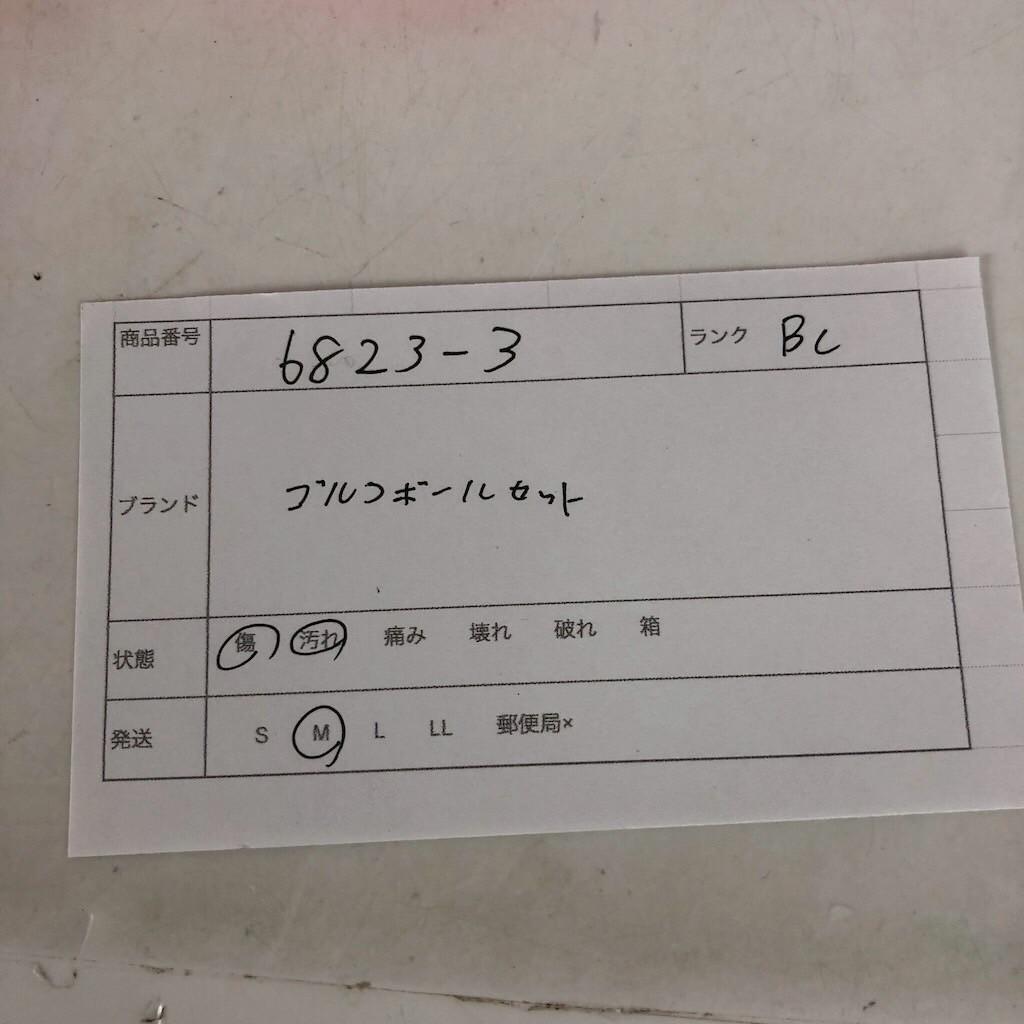 商品番号 6823-3 ランク BC
ブランド ゴルフボールセット
状態 傷 汚れ 痛み 壊れ 破れ 箱
発送 S M L LL 郵便局×